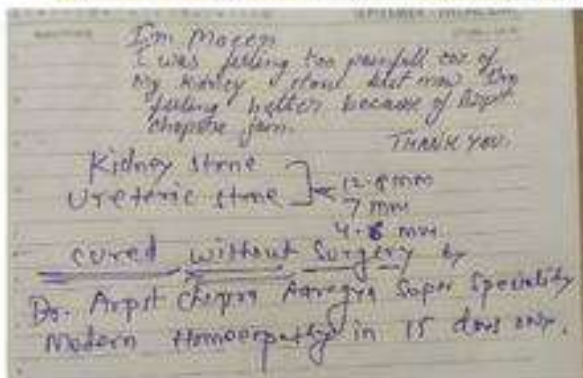 I'm Moeen
I was feeling too painfull coz of
My Kidney stone but now I'm
feeling better because of Arpit
chopra
THANK YOU.
Kidney stone
Ureteric stone
12.8 mm
7 mm
4.8 mm
cured without Surgery by
Dr. Arpit Chopra Aarogya Super Speciality
Modern Homoeopathy in 15 days only.